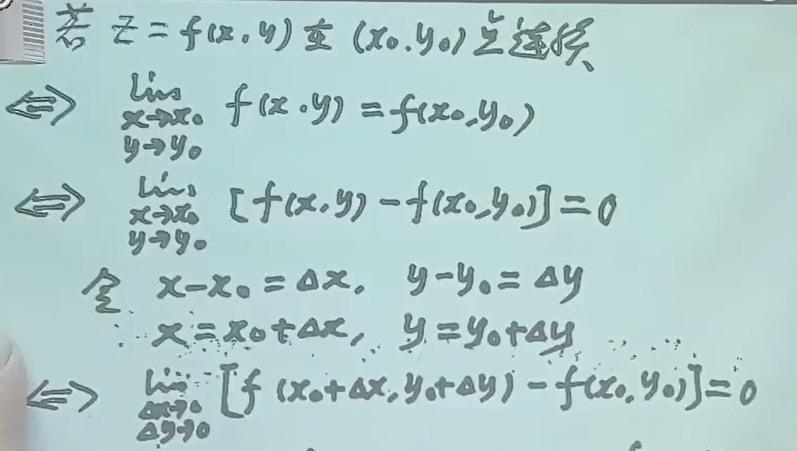 若 z = f(x,y) 在 (x₀,y₀) 处连续
⟺ lim x→x₀ y→y₀ f(x,y) = f(x₀,y₀)
⟺ lim x→x₀ y→y₀ [f(x,y) - f(x₀,y₀)] = 0
令 x - x₀ = Δx, y - y₀ = Δy
x = x₀ + Δx, y = y₀ + Δy
⟺ lim Δx→0 Δy→0 [f(x₀+Δx, y₀+Δy) - f(x₀,y₀)] = 0